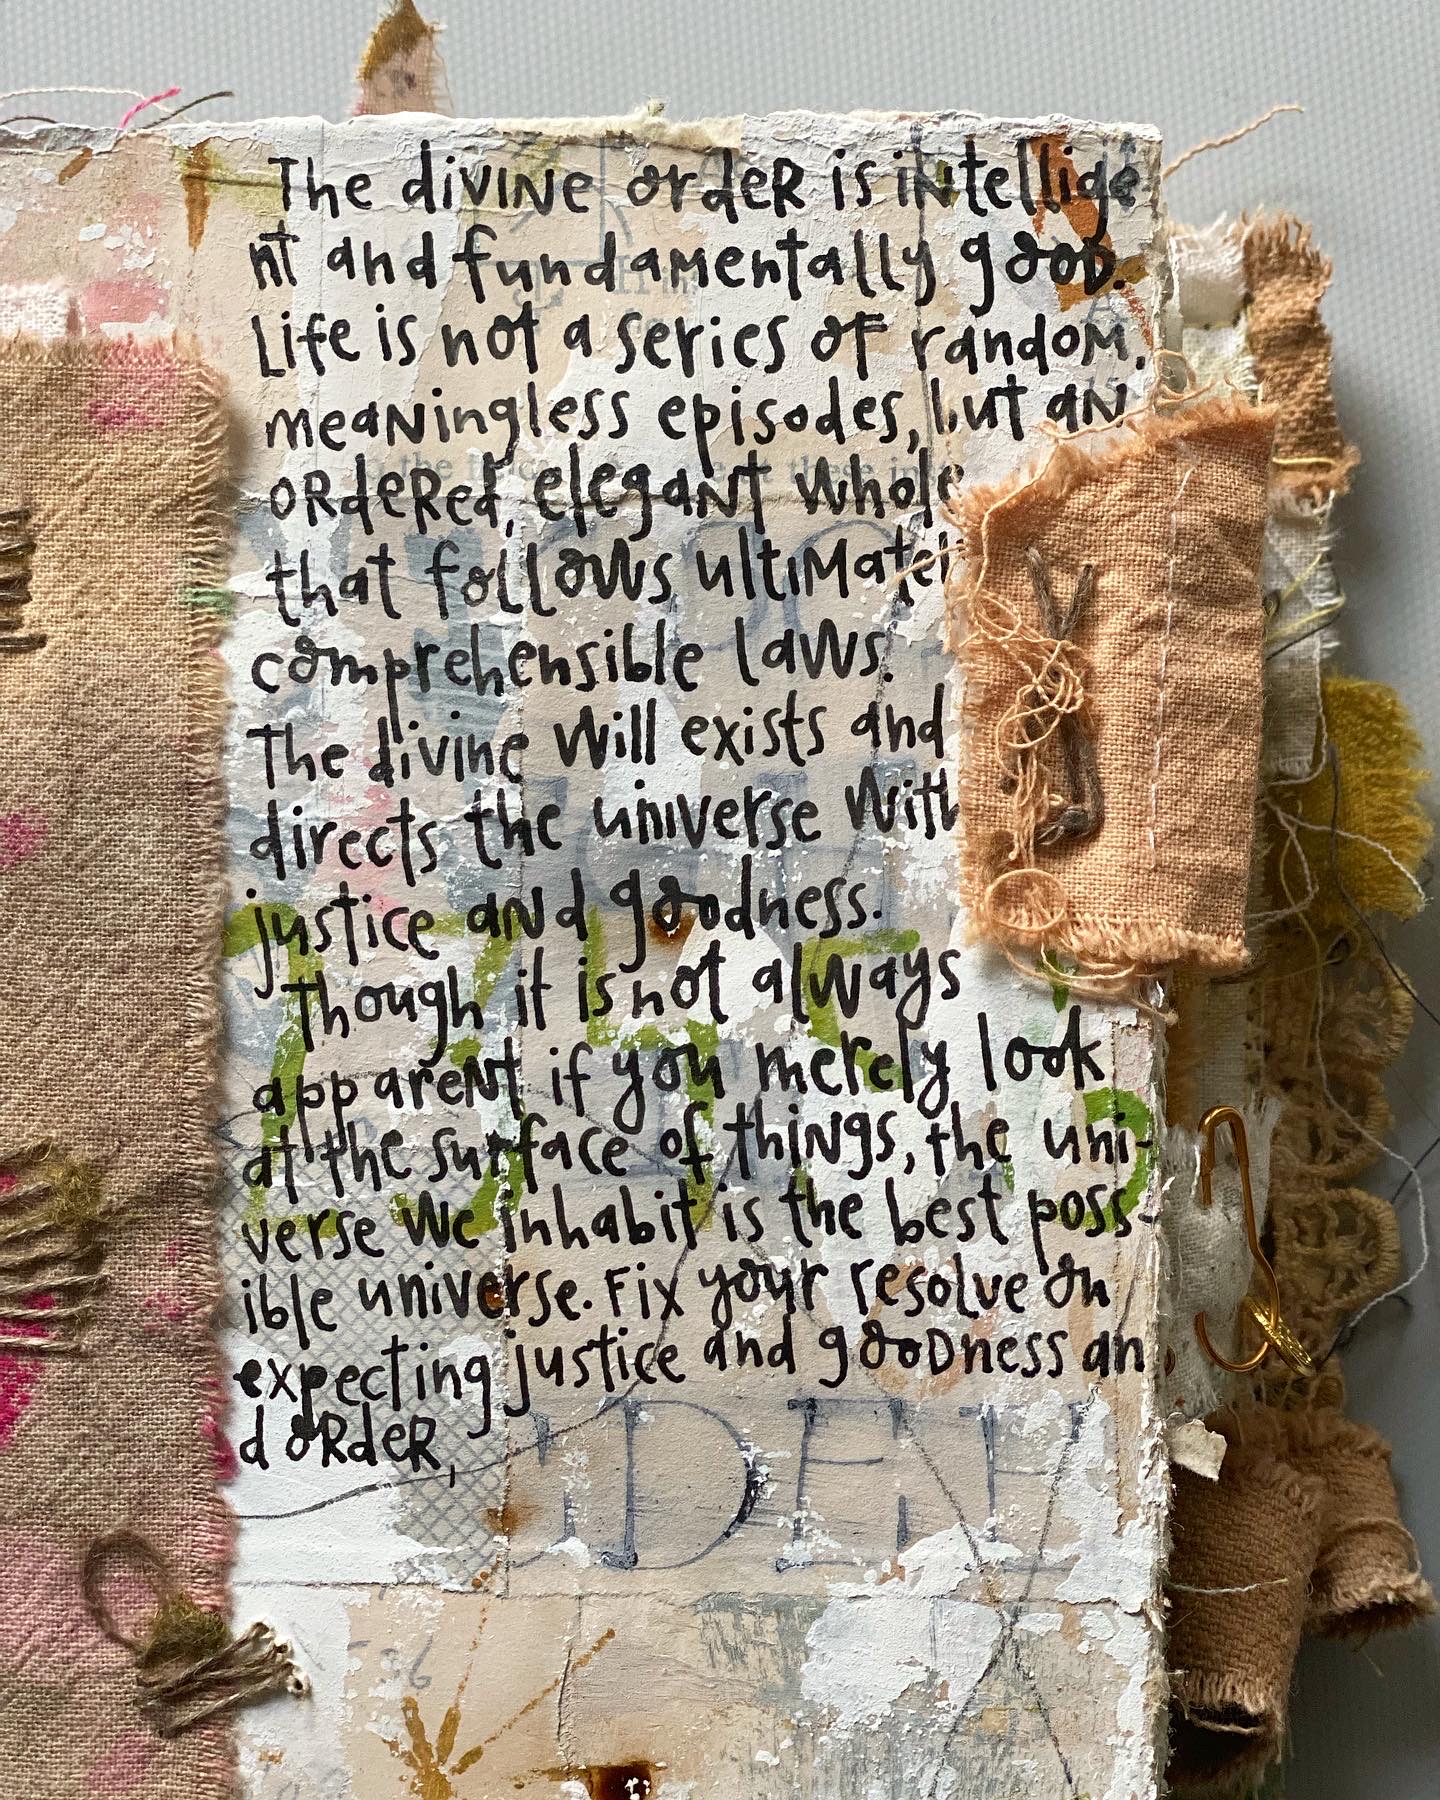 The divine order is intellige
nt and fundamentally good.
Life is not a series of random,
meaningless episodes, but an
ordered, elegant whole
that follows ultimatel
comprehensible laws.
The divine will exists and
directs the universe with
justice and goodness.
Though it is not always
apparent if you merely look
at the surface of things, the uni-
verse we inhabit is the best poss-
ible universe. Fix your resolve on
expecting justice and goodness an
d order,
DEN
536